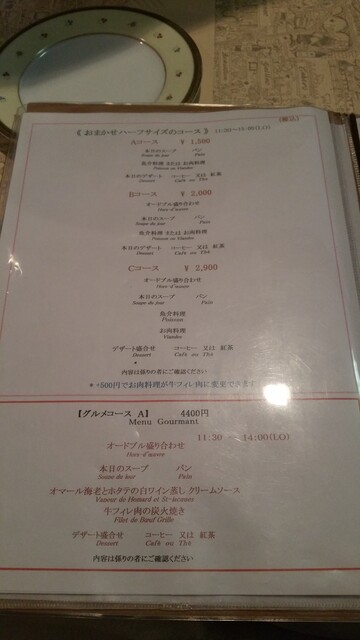 (税込)
《 おまかせハーフサイズのコース 》 11:30～15:00(LO)
Aコース ￥ 1,500
本日のスープ パン
Soupe du jour Pain
魚介料理 または お肉料理
Poisson ou Viandes
本日のデザート コーヒー 又は 紅茶
Dessert Café ou Thé
Bコース ￥ 2,000
オードブル盛り合わせ
Hors-d'œuvre
本日のスープ パン
Soupe du jour Pain
魚介料理 または お肉料理
Poisson ou Viandes
本日のデザート コーヒー 又は 紅茶
Dessert Café ou Thé
Cコース ￥ 2,900
オードブル盛り合わせ
Hors-d'œuvre
本日のスープ パン
Soupe du jour Pain
魚介料理
Poisson
お肉料理
Viandes
デザート盛合せ コーヒー 又は 紅茶
Dessert Café ou Thé
内容は係りの者にご確認ください
* +500円でお肉料理が牛フィレ肉に変更できます
【グルメコース A】 4400円
Menu Gourmant
11:30 ～ 14:00(LO)
オードブル盛り合わせ
Hors-d'œuvre
本日のスープ パン
Soupe du jour Pain
オマール海老とホタテの白ワイン蒸し クリームソース
Vapeur de Homard et St-Jacques
牛フィレ肉の炭火焼き
Filet de Bœuf Grille
デザート盛合せ コーヒー 又は 紅茶
Dessert Café ou Thé
内容は係りの者にご確認ください